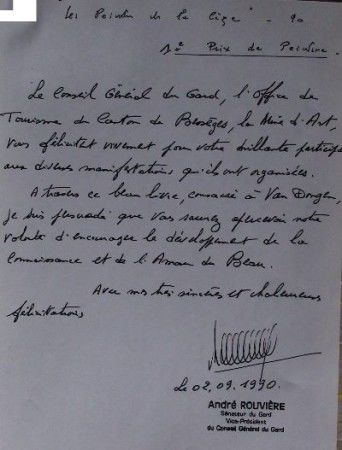 Les Peintres de la Cèze - 90
1e Prix de Peinture
Le Conseil Général du Gard, l'Office de
Tourisme du Canton de Bessèges, la d'Art,
vous félicitent vivement pour votre brillante
aux diverses manifestations qu'ils ont organisées.
A travers ce beau livre, consacré à Van Dongen,
je suis persuadé que vous saurez apercevoir notre
volonté d'encourager le développement de la
connaissance et de l'Amour du Beau.
Avec mes très sincères et chaleureuses
félicitations
Le 02.09.1990.
André ROUVIÈRE
Sénateur du Gard
Vice-Président
du Conseil Général du Gard